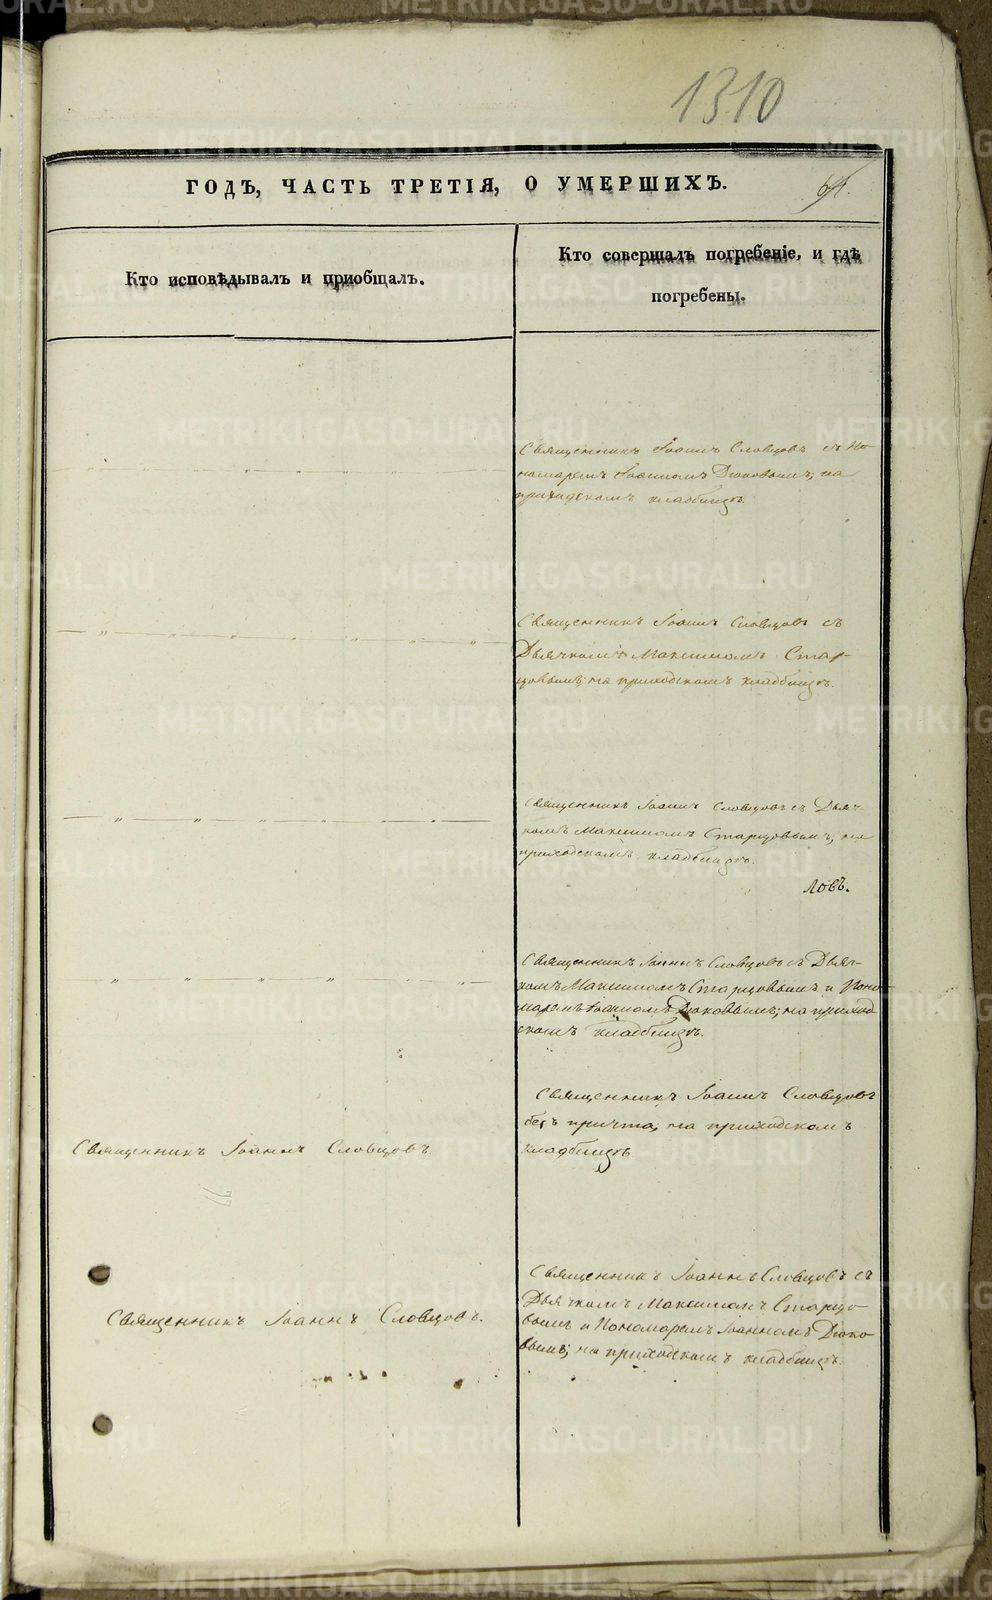 1310
ГОДЪ, ЧАСТЬ ТРЕТІЯ, О УМЕРШИХЪ.
Кто исповѣдывалъ и пріобщалъ.
Кто совершалъ погребеніе, и гдѣ
погребены.
Священникъ Іоаннъ Словцовъ съ По-
номаремъ Іоанномъ Дюковымъ; на
приходскомъ кладбищѣ.
Священникъ Іоаннъ Словцовъ съ
Дьячкомъ Максимомъ Стар-
цовымъ; на приходскомъ кладбищѣ.
Священникъ Іоаннъ Словцовъ съ Дьяч-
комъ Максимомъ Старцовымъ; на
приходскомъ кладбищѣ.
ловъ.
Священникъ Іоаннъ Словцовъ съ Дьяч-
комъ Максимомъ Старцовымъ и Поно-
маремъ Іоанномъ Дюковымъ; на приход-
скомъ кладбищѣ.
Священникъ Іоаннъ Словцовъ.
Священникъ Іоаннъ Словцовъ
безъ причта; на приходскомъ
кладбищѣ
Священникъ Іоаннъ Словцовъ.
Священникъ Іоаннъ Словцовъ съ
Дьячкомъ Максимомъ Старцо-
вымъ и Пономаремъ Іоанномъ Дюко-
вымъ; на приходскомъ кладбищѣ.
METRIKI.GASO-URAL.RU